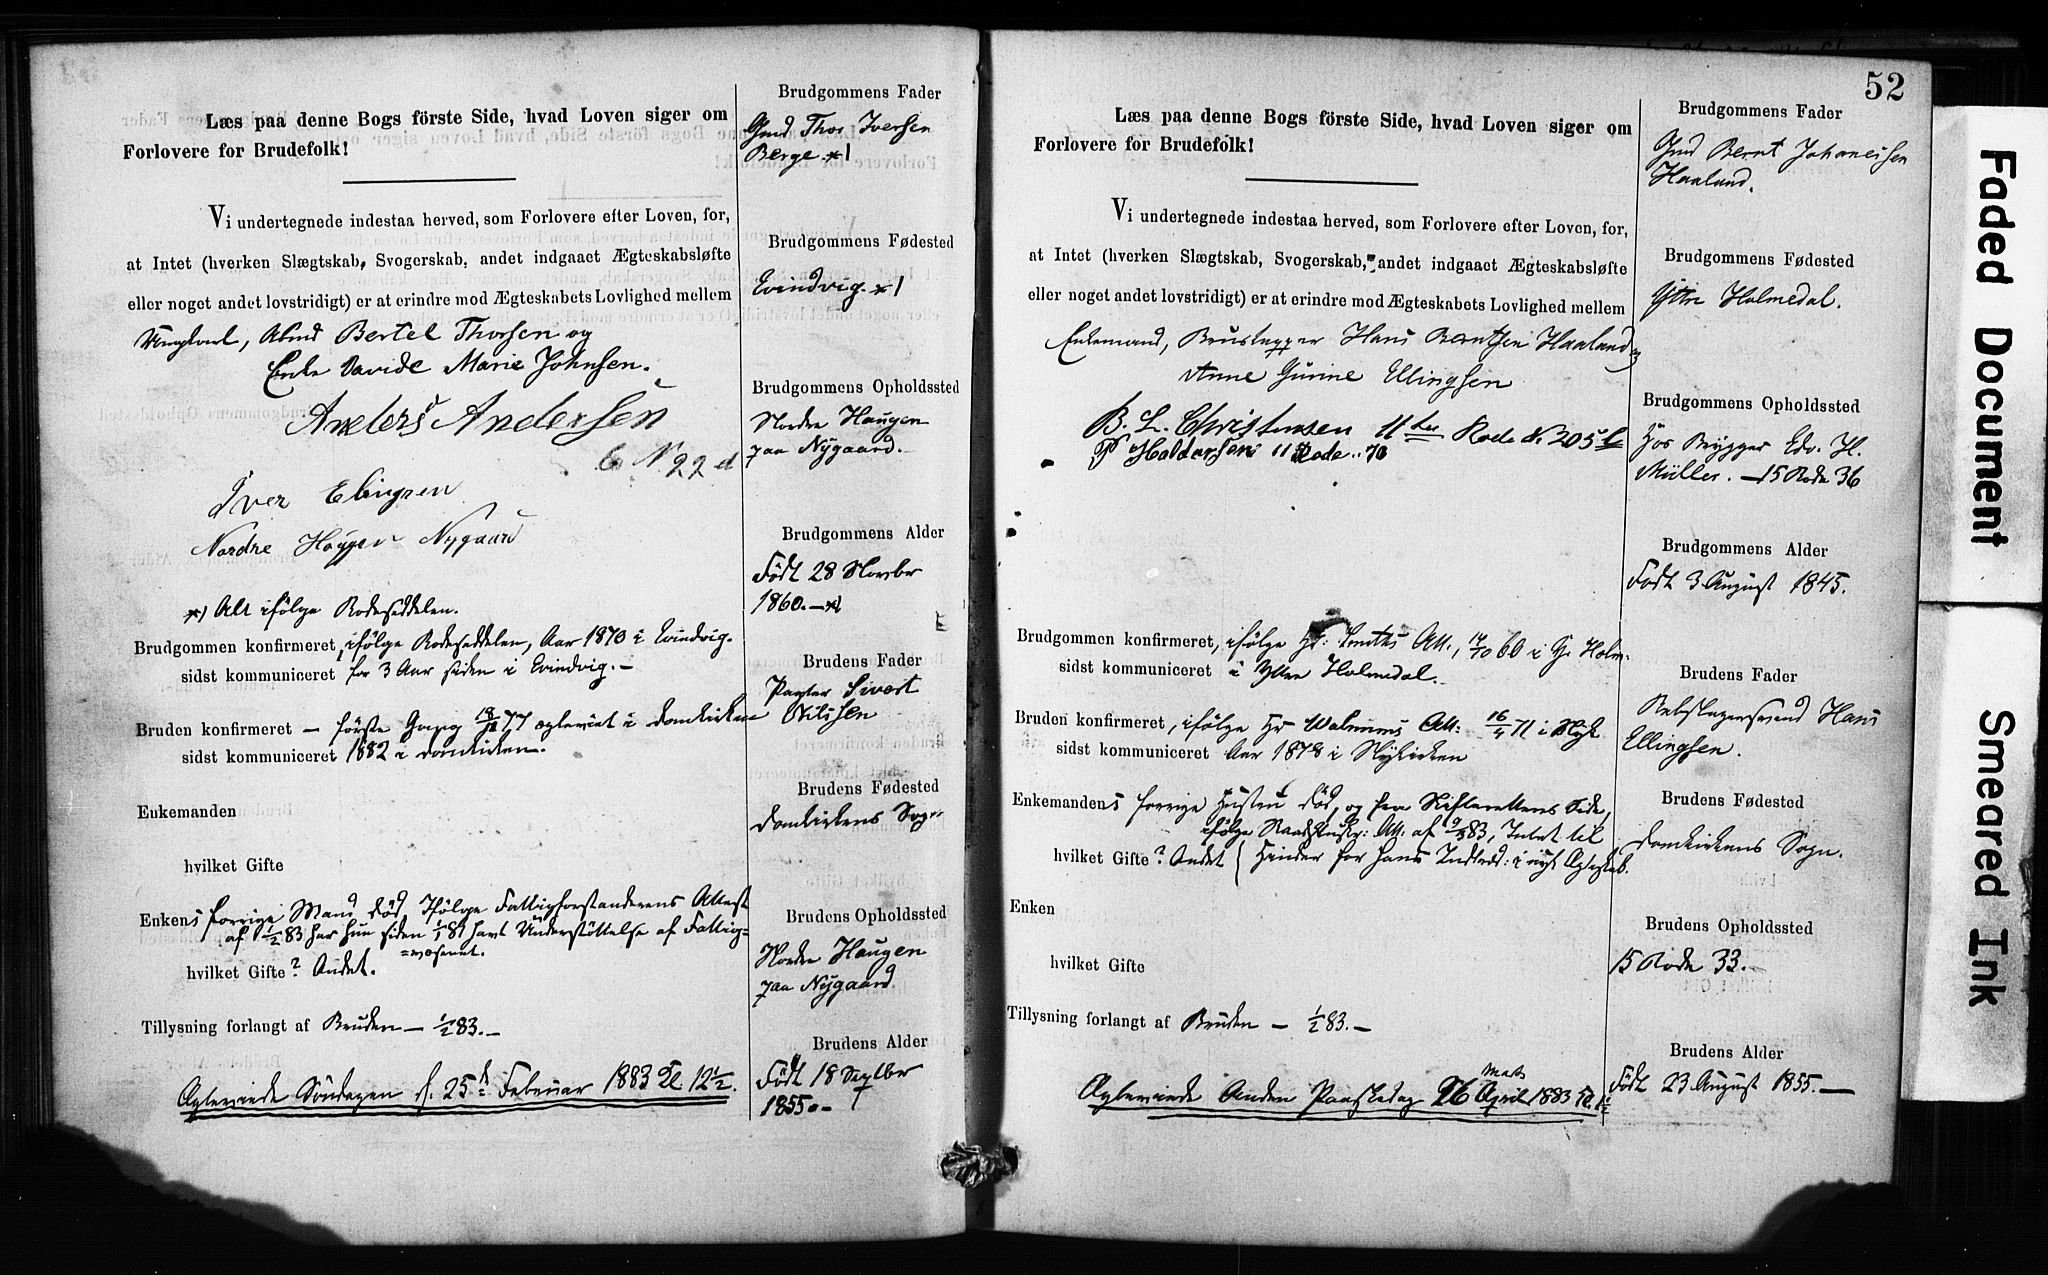 Læs paa denne Bogs förste Side, hvad Loven siger om
Forlovere for Brudefolk!
Vi undertegnede indestaa herved, som Forlovere efter Loven, for,
at Intet (hverken Slægtskab, Svogerskab, andet indgaaet Ægteskabsløfte
eller noget andet lovstridigt) er at erindre mod Ægteskabets Lovlighed mellem
Ungkarl, Bertel Thorsen og
Enke Davide Marie Johnsen.
Anders Andersen
6 N 22 d
Iver Elingsen
Nordre Nygaard
*) Alt ifölge Rodeseddelen.
Brudgommen konfirmeret, ifölge Rodeseddelen, Aar 1870 i Evindvig.
sidst kommuniceret for 3 Aar siden i Evindvig. –
Bruden konfirmeret – förste Gang 77 ægteviet i Domkirken
sidst kommuniceret 1882 i Domkirken.
Enkemanden
hvilket Gifte
Enkens forrige Mand död. Ifölge Fattigforstanderens Attest
af 1/2 83 har hun siden havt Understöttelse af Fattig=
=væsenet.
hvilket Gifte? Andet.
Tillysning forlangt af Bruden – 1/2 83. –
Ægteviede Söndagen d. 25de Februar 1883 Kl 12 1/2.
Brudgommens Fader
Gmd Thor Iversen
Berge *)
Brudgommens Fødested
Evindvig *)
Brudgommens Opholdssted
Nordre Haugen
paa Nygaard.
Brudgommens Alder
Födt 28 Novbr
1860. – *)
Brudens Fader
Pagter Sivert
Nilssen
Brudens Fødested
Domkirkens Sogn
Brudens Opholdssted
Nordre Haugen
paa Nygaard
Brudens Alder
Födt 18 Septbr
1855. –
52
Læs paa denne Bogs förste Side, hvad Loven siger om
Forlovere for Brudefolk!
Vi undertegnede indestaa herved, som Forlovere efter Loven, for,
at Intet (hverken Slægtskab, Svogerskab, andet indgaaet Ægteskabsløfte
eller noget andet lovstridigt) er at erindre mod Ægteskabets Lovlighed mellem
Enkemand, Hans Berntsen Haaland og
Anne Gurine Ellingsen
B. L. Christensen 11te Rode No 205 b
P Haldorsen 11 Rode 70
Brudgommen konfirmeret, ifölge Hr: Smiths Att., 60 i Y. Holm.
sidst kommuniceret i Yttre Holmedal.
Bruden konfirmeret, ifölge Hr Att: 16/4 71 i Nyk
sidst kommuniceret Aar 1878 i Nykirken
Enkemandens forrige Hustru död, og fra Skifterettens Side,
ifölge Att. af 83, Intet til
hvilket Gifte? Andet { Hinder for hans Indtræd: i nyt Ægteskab.
Enken
hvilket Gifte
Tillysning forlangt af Bruden – 1/2 83. –
Ægteviede Anden Paaskedag 26 April Marts 1883 Kl.
Brudgommens Fader
Gmd Bernt Johannesen
Haaland.
Brudgommens Fødested
Yttre Holmedal.
Brudgommens Opholdssted
Hos Brygger Edv. H.
Müller. – 15 Rode 36
Brudgommens Alder
Födt 3 August 1845.
Brudens Fader
Rebslagersvend Hans
Ellingsen.
Brudens Fødested
Domkirkens Sogn.
Brudens Opholdssted
15 Rode 33. –
Brudens Alder
Födt 23 August 1855. –
Faded Document
Smeared Ink